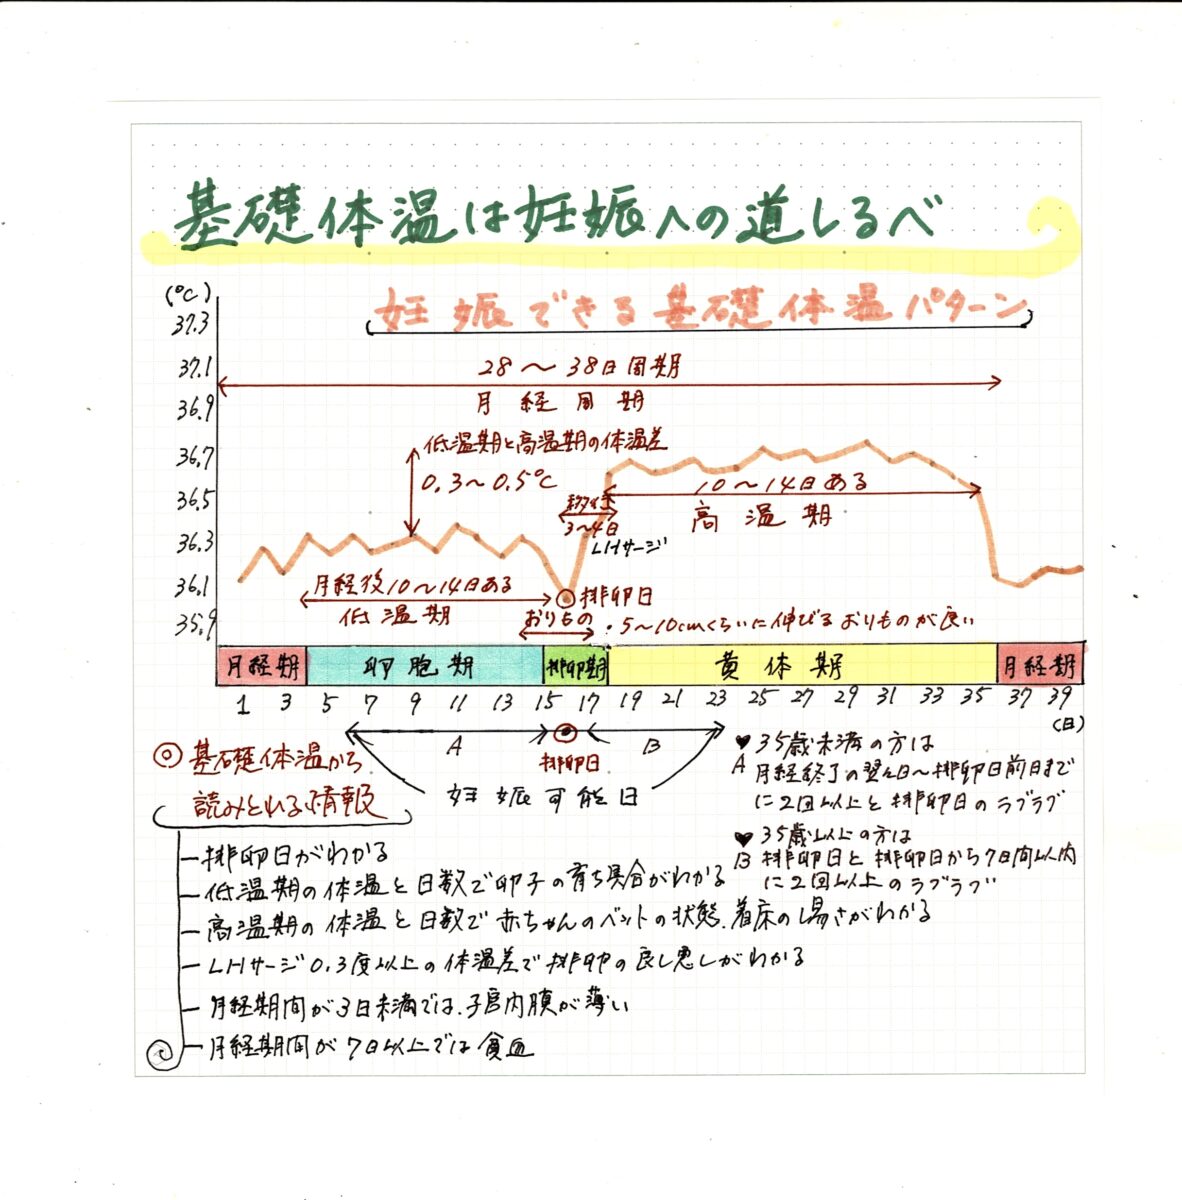 基礎体温は妊娠への道しるべ
(℃)
妊娠できる基礎体温パターン
37.3
37.1
36.9
36.7
36.5
36.3
36.1
35.9
28〜38日周期
月経周期
低温期と高温期の体温差
0.3〜0.5℃
移行
3〜4日
LHサージ
10〜14日ある
高温期
月経後10〜14日ある
低温期
排卵日
おりもの
・5〜10cmくらいに伸びるおりものが良い
月経期 卵胞期 排卵期 黄体期 月経期
1 3 5 7 9 11 13 15 17 19 21 23 25 27 29 31 33 35 37 39
(日)
A B
排卵日
妊娠可能日
◎基礎体温から
読みとれる情報
排卵日がわかる
低温期の体温と日数で卵子の育ち具合がわかる
高温期の体温と日数で赤ちゃんのベットの状態、着床の易さがわかる
LHサージ0.3度以上の体温差で排卵の良し悪しがわかる
月経期間が3日未満では、子宮内膜が薄い
月経期間が7日以上では貧血
♥35歳未満の方は
A 月経終了の翌々日〜排卵日前日まで
に2回以上と排卵日のラブラブ
♥35歳以上の方は
B 排卵日と排卵日から7日間以内
に2回以上のラブラブ